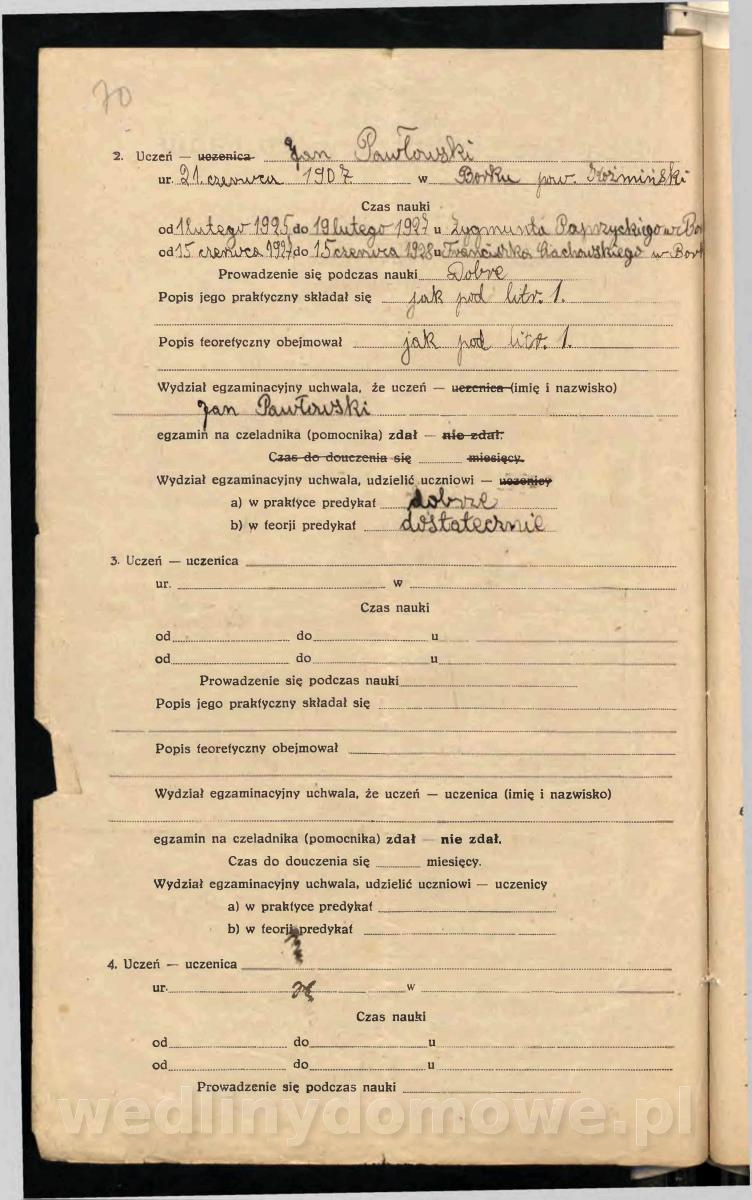 70
2. Uczeń — uczenica Jan Pawłowski
ur. 21. czerwca 1907 w Borku pow. Koźmiński
Czas nauki
od 1 lutego 1925 do 19 lutego 1927 u Zygmunta Paprzyckiego w Bor
od 15 czerwca 1927 do 15 czerwca 1928 u Franciszka Ciachowskiego w Bork
Prowadzenie się podczas nauki Dobre
Popis jego praktyczny składał się jak pod litr. 1.
Popis teoretyczny obejmował jak pod litr. 1.
Wydział egzaminacyjny uchwala, że uczeń — uczenica (imię i nazwisko)
Jan Pawłowski
egzamin na czeladnika (pomocnika) zdał — nie zdał.
Czas do douczenia się miesięcy.
Wydział egzaminacyjny uchwala, udzielić uczniowi — uczenicy
a) w praktyce predykat dobrze
b) w teorji predykat dostatecznie
3. Uczeń — uczenica
ur. w
Czas nauki
od do u
od do u
Prowadzenie się podczas nauki
Popis jego praktyczny składał się
Popis teoretyczny obejmował
Wydział egzaminacyjny uchwala, że uczeń — uczenica (imię i nazwisko)
egzamin na czeladnika (pomocnika) zdał — nie zdał.
Czas do douczenia się miesięcy.
Wydział egzaminacyjny uchwala, udzielić uczniowi — uczenicy
a) w praktyce predykat
b) w teorji predykat
4. Uczeń — uczenica
ur. w
Czas nauki
od do u
od do u
Prowadzenie się podczas nauki
wedlinydomowe.pl